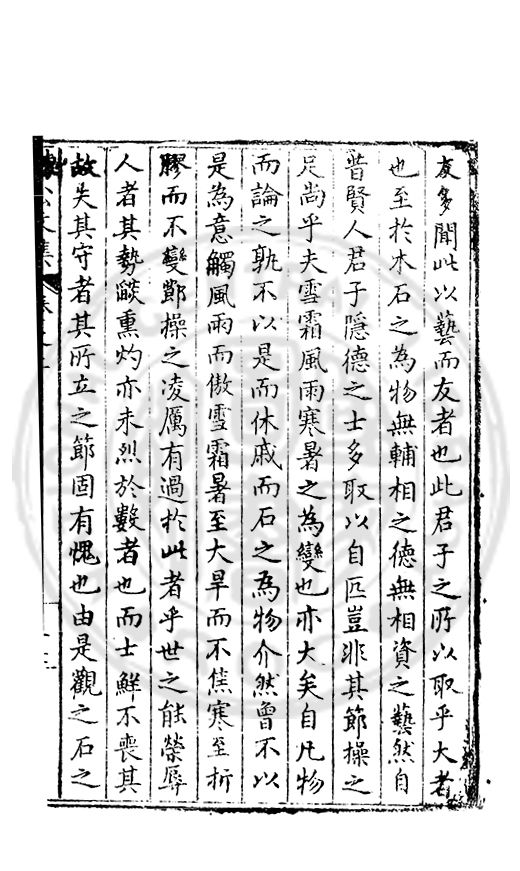 友多聞此以藝而友者也此君子之所以取乎大者
也至於木石之為物無輔相之德無相資之藝然自
昔賢人君子隱德之士多取以自匹豈非其節操之
足尚乎夫雪霜風雨寒暑之為變也亦大矣自凡物
而論之孰不以是而休戚而石之為物介然曾不以
是為意觸風雨而傲雪霜暑至大旱而不焦寒至折
膠而不變節操之凌厲有過於此者乎世之能榮辱
人者其勢燄熏灼亦未烈於數者也而士鮮不喪其
故失其守者其所立之節固有愧也由是觀之石之